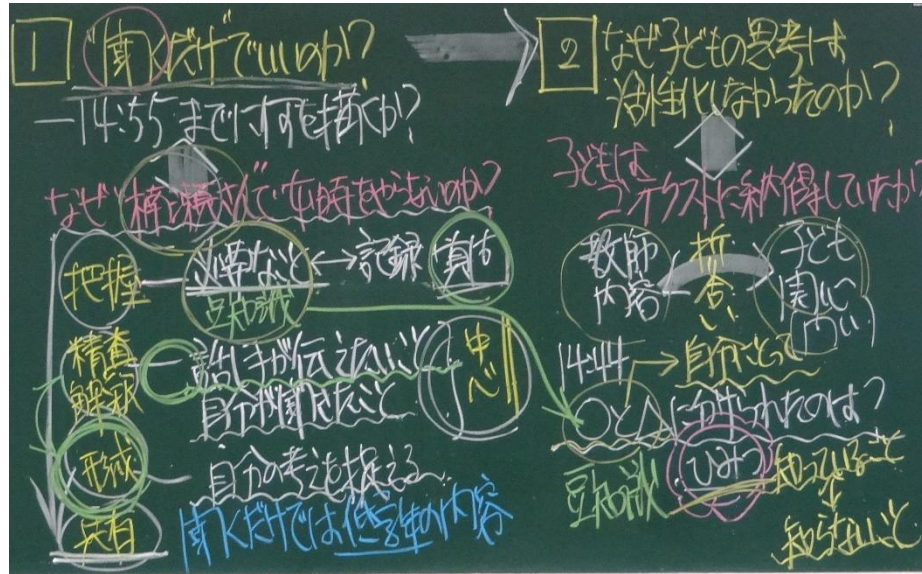 1 "聞くだけ"でいいのか?
―14:55までに
なぜ 横瀬さんで
把握 ― 必要なこと ↔ 記録
豆知識
精査 ― 話し手が伝えたいこと
解釈 自分が聞きたいこと
中
形成 自分の考えを捉える
共有
聞くだけでは低学年の内容
2 なぜ子どもの思考は
活性化しなかったのか?
子どもは
コンテクストに納得していたか
教師 折 子ども
内容 合い
14:44 → 自分にとって
○と△に分けられたのは?
豆知識 ひみつ 知っていること
知らないこと